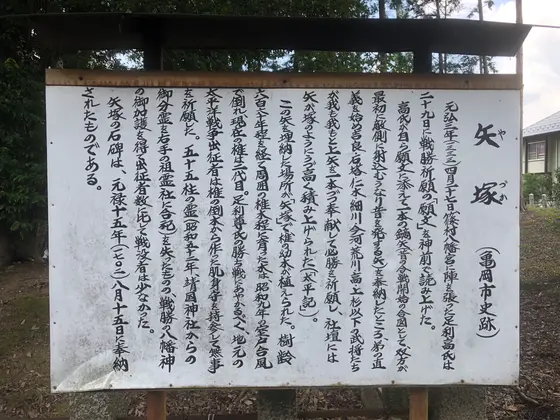 矢塚
や づか
(亀岡市史跡)
元弘三年(一三三三)四月二十七日篠村八幡宮に陣を張った足利高氏は
二十九日に戦勝祈願の「願文」を神前で読み上げた。
高氏が自ら願文に添えて一本の鏑矢(昔の合戦開始の合図として、双方が
最初に敵側に射込むうなり音を発する矢)を奉納したところ、弟の直
義を始め吉良、石塔、仁木、細川、今河、荒川、高、上杉、以下の武将たち
が我も我もと上矢を一本づつ奉献して必勝を祈願し、社壇には
矢が塚のようにうず高く積み上げられた(「太平記」)。
この矢を埋納した場所が「矢塚」で椎の幼木が植えられた。樹齢
七百六十
程を経て周囲の椎木程に育った木は、昭和九年の室戸台風
で倒れ、現在の椎は二代目。足利尊氏の勝ち戦にあやかるべく、地元の
太平洋戦争出征者は椎の倒木から作った肌身守を持参して無事
を祈願した。五十五柱の霊(昭和五十一年、靖国神社からの
御分霊を右手の祖霊社に合祀)を失ったものの、戦勝の八幡神
の御加護を得、出征者数に比して戦没者は少なかった。
矢塚の石碑は、元禄十五年(一七〇二)八月十五日に奉納
されたものである。